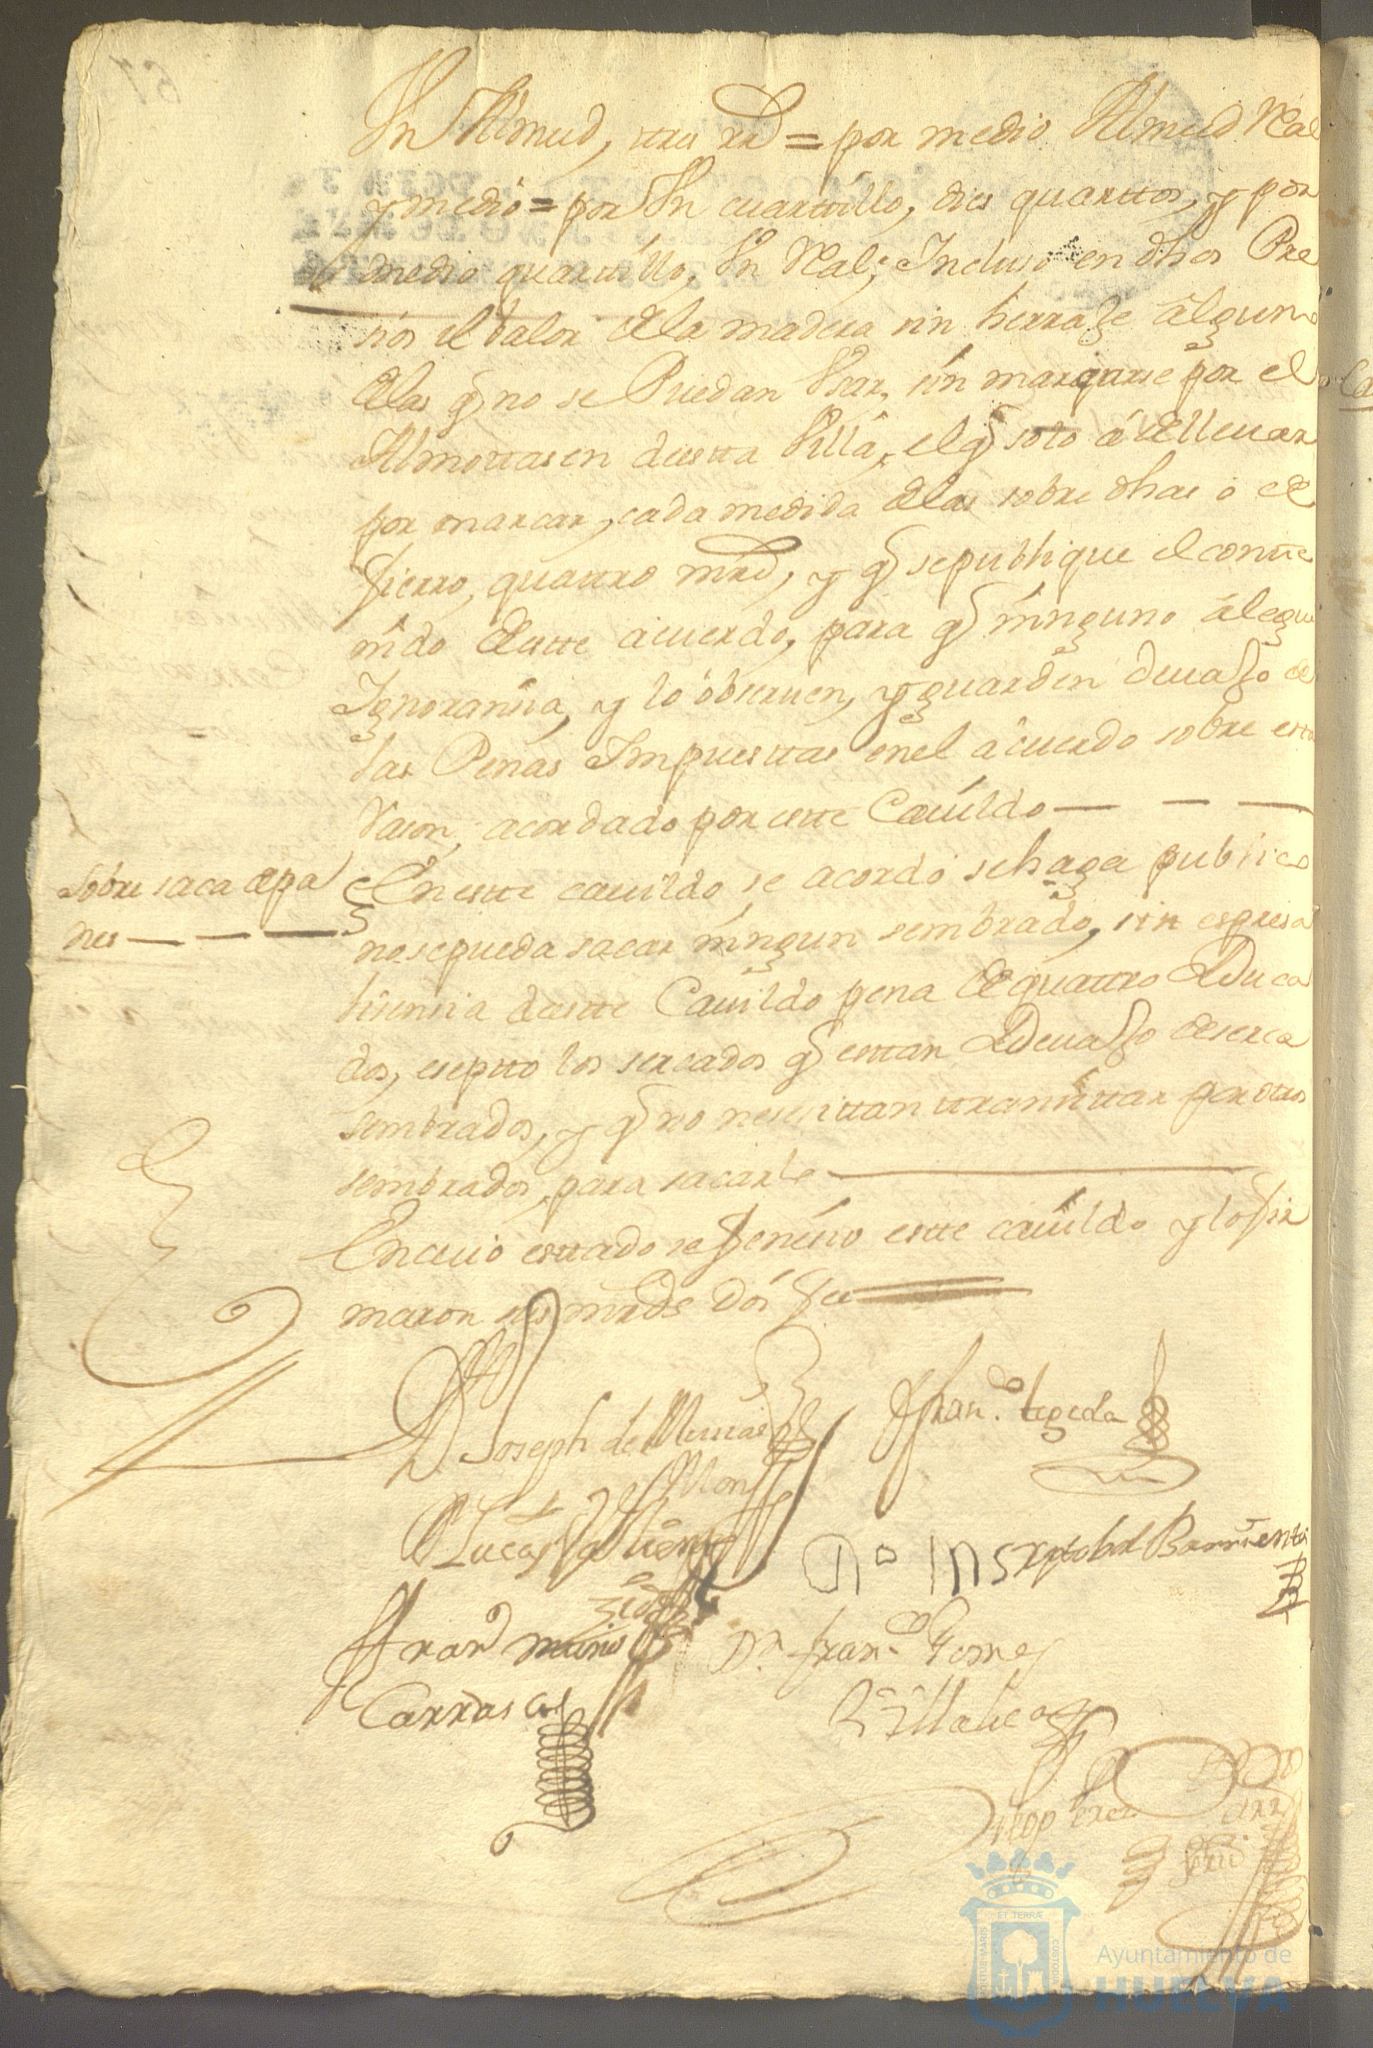 Un Almud, tres rrs = por medio Almud Real
y medio = por Un cuartillo, dies quarttos, y por
medio quartillo, Un Real; Incluso en dhos Pre
sios el balor de la madera sin herraje alguno
de las q no se Puedan Usar, sin marqarse por el
Almottasen de estta Villa, el q solo á de lleuar
por marcar, cada medida de las sobre dhas o de
fierro, quattro mrs, y q se publique el contte
nido de estte acuerdo, para q ninguno álegue
Ygnoransia, y lo obseruen, y guarden deuajo de
las Penas Impuesttas en el acuerdo sobre estta
Rason, acordado por estte Cauildo
Sobre saca de pa
nes
En estte cauildo se acordó se haga publico
no se pueda sacar ningun sembrado, sin espresa
lisensia de estte Cauildo pena de quattro Duca
dos, eseptto los sercados q esttan Deuajo de serca
sembrados, y q no nesesittan transittar por otros
sembrados, para sacarle
En cuio esttado se fenesio estte cauildo y lo fir
maron sus mrds Doi fee
D Joseph de
Fran.co tejeda
Lucas
Xptobal Barrientos
Fran.co
Carrasco
Dn fran.co Gomes
Villalua
Diego Perez
Ayuntamiento de
HUELVA